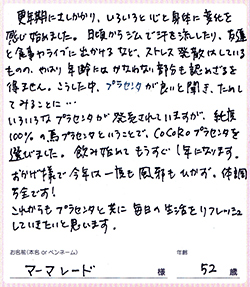 更年期にさしかかり、いろいろと心と身体に変化を
感じ始めました。日頃からジムで汗を流したり、友達
と食事やライブに出かけるなど、ストレス発散はしている
ものの、やはり年齢にはかなわない部分も認めざるを
得ません。こうした中、プラセンタが良いと聞き、ためし
てみることに…
いろいろなプラセンタが発売されていますが、純度
100%の馬プラセンタということで、COCOROプラセンタを
選びました。飲み始めてもうすぐ1年になります。
おかげ様で今年は一度も風邪もひかず、体調
万全です!
これからもプラセンタと共に毎日の生活をリフレッシュ
していきたいと思います。
お名前(本名 or ペンネーム) 年齢
マーマレード 様 52 歳